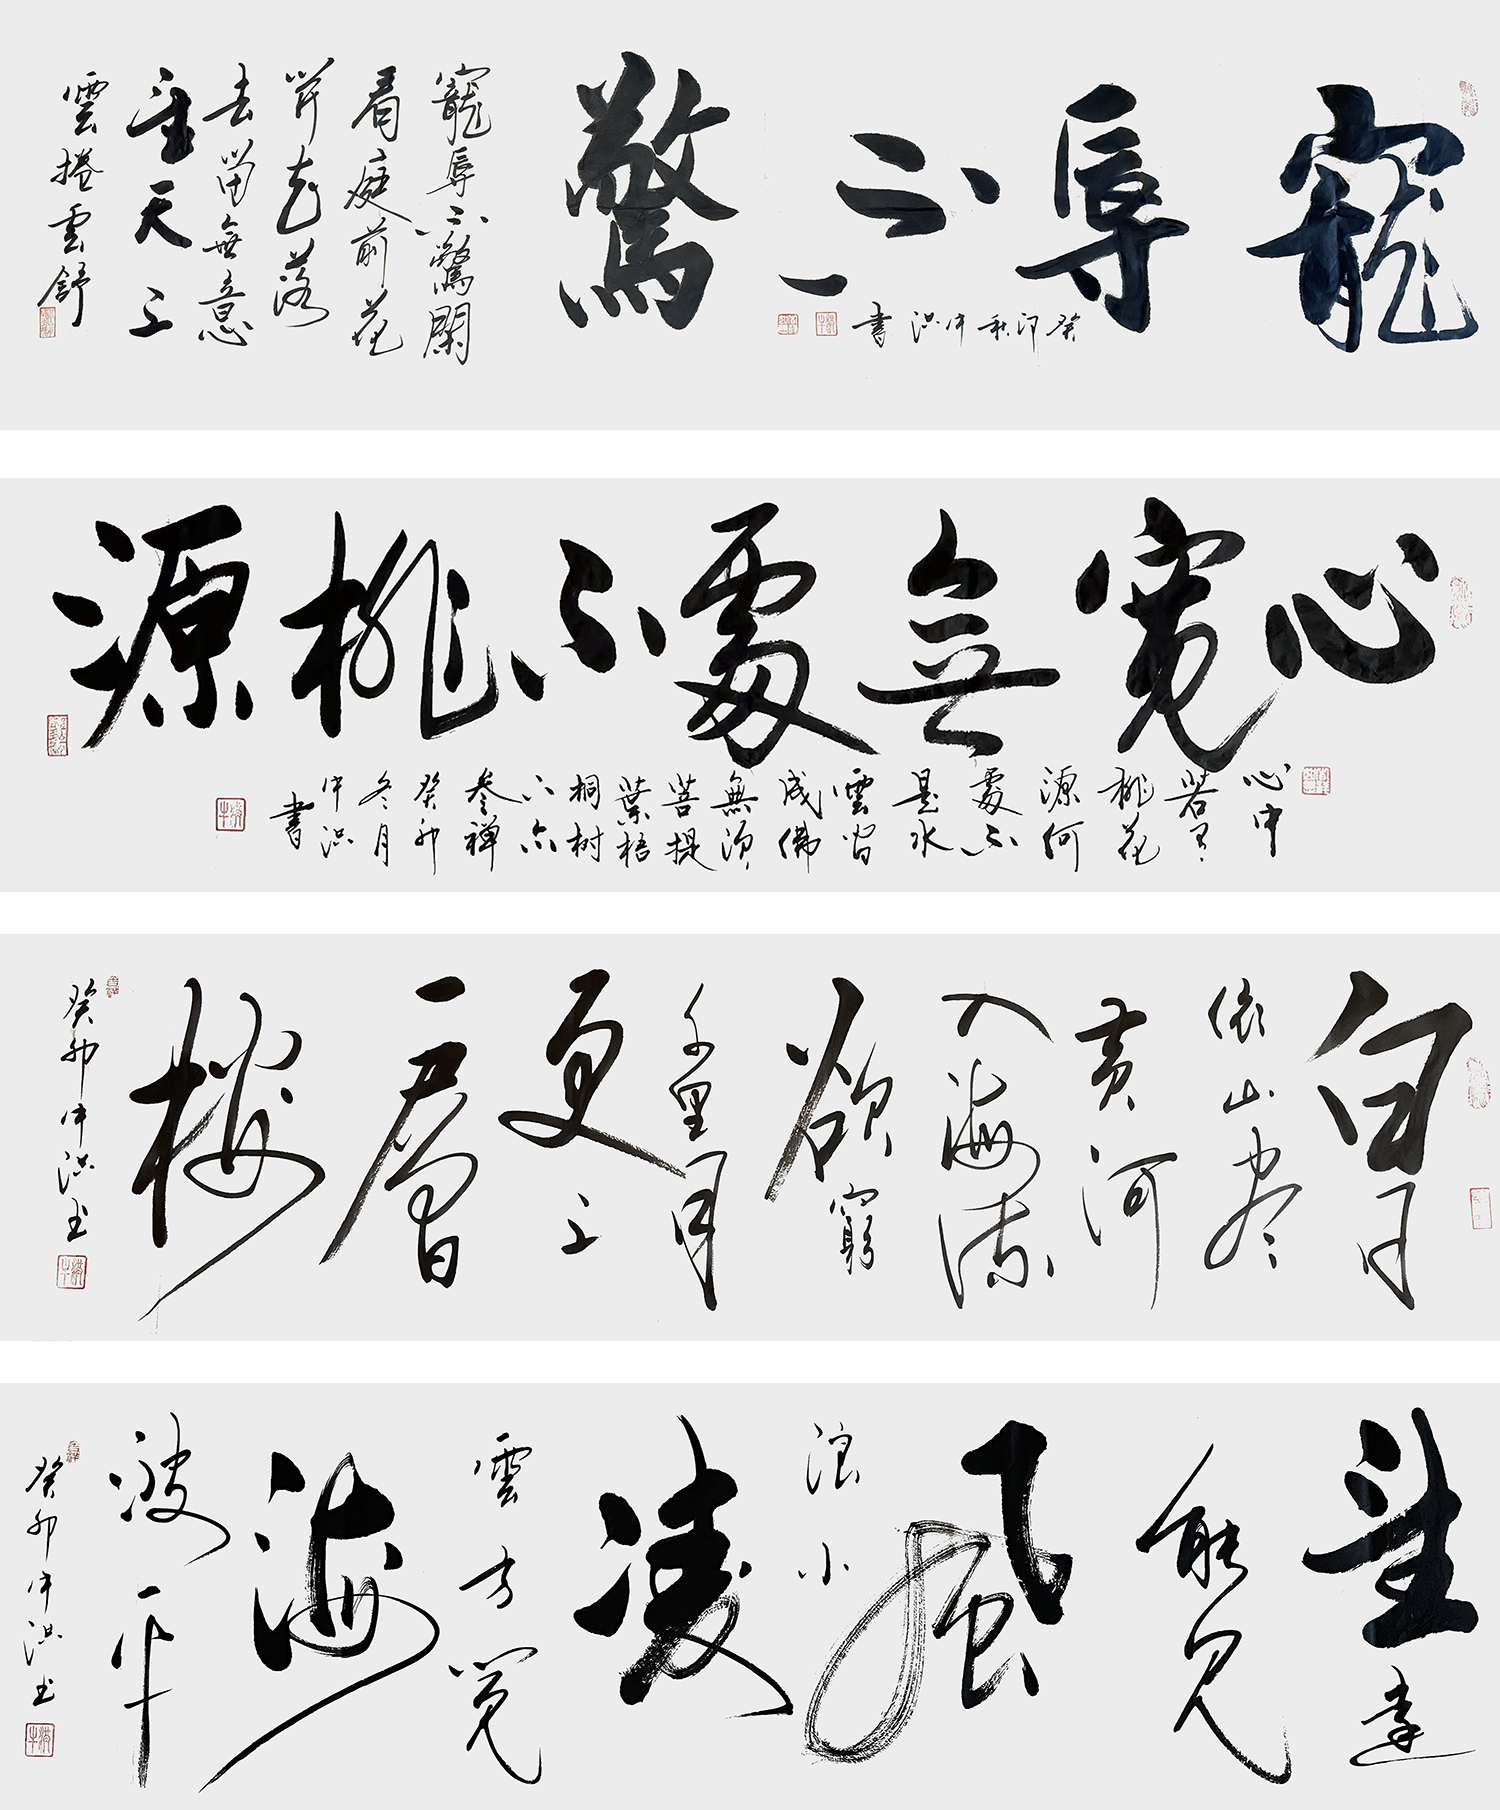 寵辱不驚
癸卯秋中洪書
寵辱不驚閑
看庭前花
開花落
去留無意
望天上
雲捲雲舒
心寬無處不桃源
心中
若有
桃花
源何
處不
是水
雲間
成佛
無須
菩提
葉梧
桐树
下亦
參禪
癸卯
冬月
中洪
書
白日
依山盡
黃河
入海流
欲窮
千里目
更上
一層
樓
癸卯中洪书
望遠
能見
風
浪小
凌
雲方覺
海
波平
癸卯中洪书